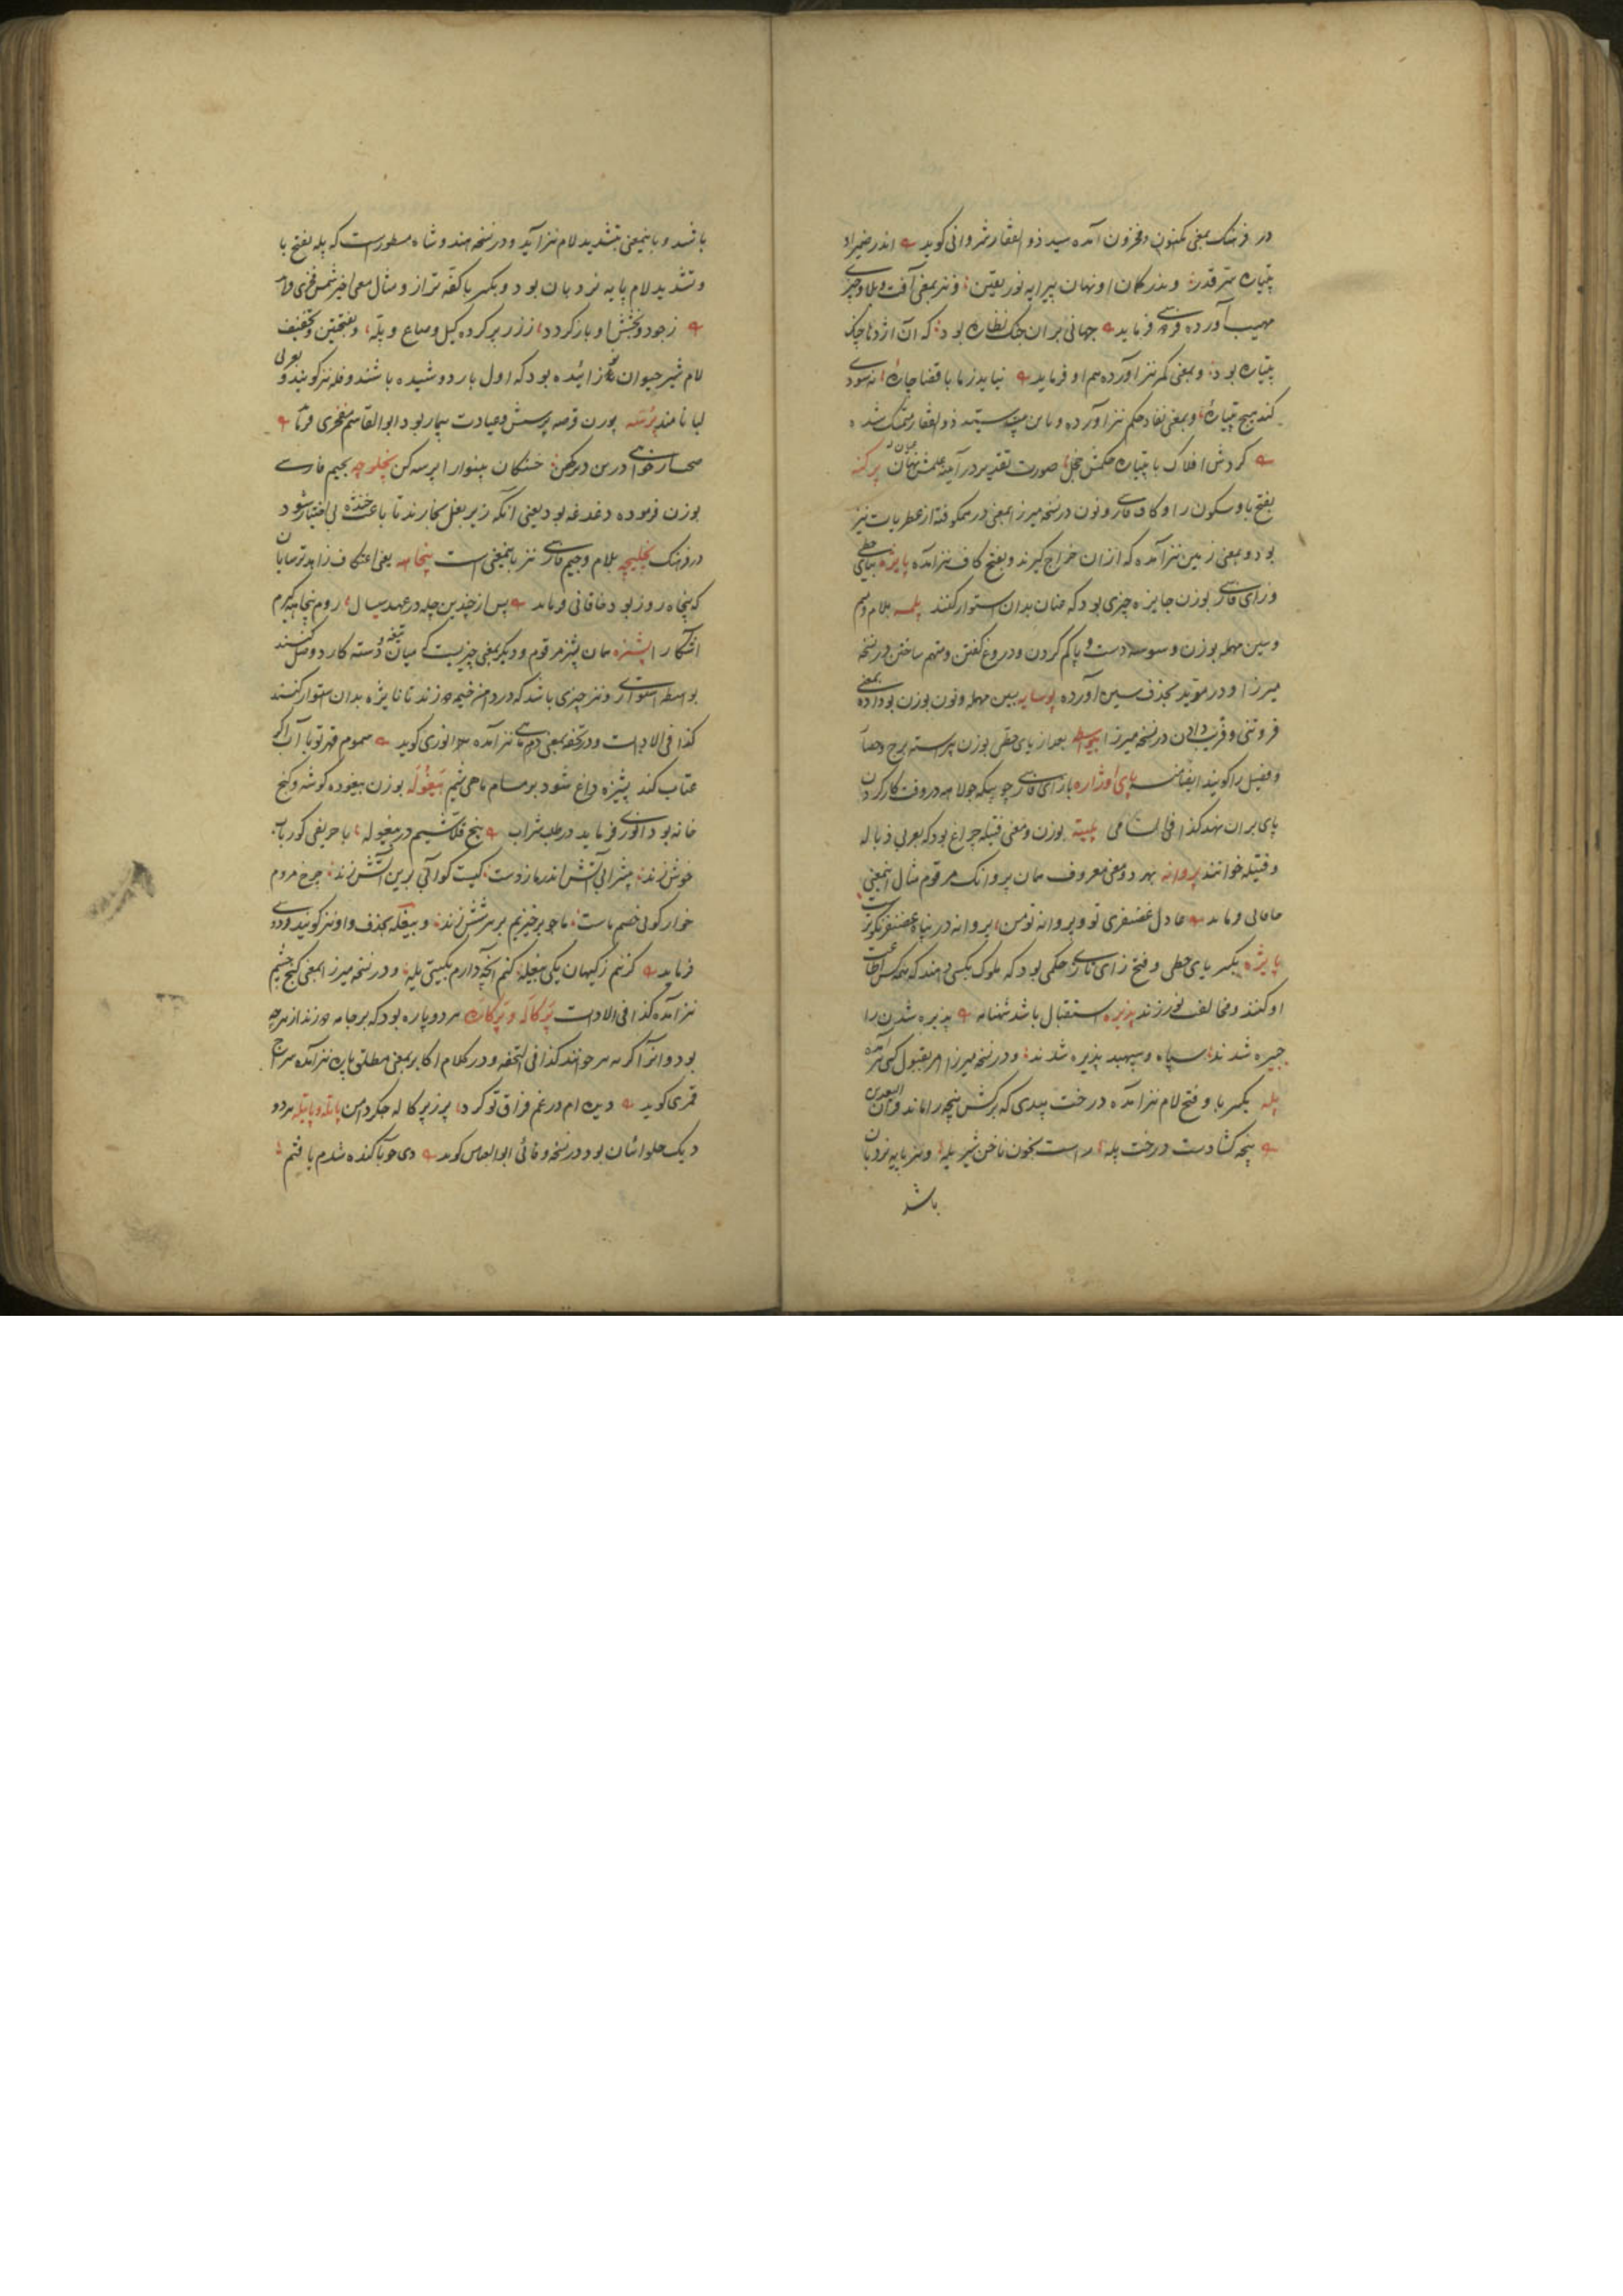 در فرهنگ بمعنی مکنون و مخزون آمده سید ذوالفقار شروانی کوید اندر ضمیر او
پتیاره سر قدر و بدر کمان او نهان پیرایه نور یقین و نیز بمعنی آفت و بلا و چیز
مهیب آورده فرماید جهانی بر ان جنک نظاره بود که آن اژدها
پتیاره بود و بمعنی مکر نیز آورده هم او فرماید نیاید زما با قضا چاره
کند هیچ پتیاره و بمعنی نفاد حکم نیز آورده و باین بیت سید ذوالفقار متمسک شده
کردش افلاک با پتیاره حکمش خجل صورت تقدیر در آینه علمش نهان پرکنه
بفتح با و سکون را و کاف فارسی و نون در نسخه میرزا بمعنی در هم کوفته از عطریات نیز
بود و بمعنی زمین نیز آمده که از ان خراج کیرند و بفتح کاف نیز آمده پایزه بیای حطی
و زای فارسی بوزن جایزه چیزی بود که عنان بدان استوار کنند پلمسه بلام و میم
و سین مهمله بوزن وسوسه دست و پا کم کردن و دروغ کفتن و متهم ساختن در نسخه
میرزا و در مؤید بحذف سین آورده بسین مهمله و نون بوزن بمعنی
فروتنی و فریب دادن در نسخه میرزا بعد از یای حطی بوزن برجسته برج و حصار
و فصیل را کویند ایضا منه پای اوژاره بازای فارسی جولاهه در وقت کار کردن
پای بران نهد کذا فی السامی پلیته بوزن و معنی فتیله چراغ بود که بعربی ذباله
و فتیله خوانند پروانه بهر دو معنی معروف همان پروانک مرقوم مثال اینمعنی
خاقانی فرماید عادل غضنفری تو و پروانه تو من پروانه در پناه غضنفر نکوتر
پایژه بکسر یای حطی و فتح زای فارسی حکمی بود که ملوک بکسی دهند که همه کس اطاعت
او کنند و مخالفت نورزند پذیره استقبال باشد شهنامه پذیره شدن را
چیره شدند سپاه و سپهبد پذیره شدند و در نسخه میرزا امر بقبول کسی نیز آمده
پله بکسر با و فتح لام نیز آمده درخت بیدی که برکش پنجه را ماند
پنجه کشادست درخت پله راست بخون ناخن شیر یله و نیز پایه نردبان
باشد
باشد و باینمعنی بتشدید لام نیز آید و در نسخه هندوشاه مسطور است که پله بفتح با
و تشدید لام پایه نردبان بود و بکسر با کفه ترازو مثال معنی اخیر شمس فخری
زجود و بخشش او باز کردد ز زر پر کرده کیل و صاع و پله و بفتحتین و تخفیف
لام شیر حیوان نو زائیده بود که اول بار دوشیده باشند و فله نیز کویند و بعربی
لبا نامند پرسه بوزن قرصه پرسش و عیادت بیمار بود ابوالقاسم مفخری
درین دیر کهن خستکان بینوا را پرسه کن پخلوچه بجیم فارسی
بوزن فرموده دغدغه بود یعنی انکه زیر بغل بخارند تا باعث خنده بی اختیار شود
در فرهنک پخلیچه بلام و جیم فارسی نیز باینمعنی است پنجاهه یعنی اعتکاف زاهد ترسایان
که پنجاه روز بود خاقانی فرماید پس از چندین چله در عهد سی سال روم پنجاهه کیرم
آشکارا پشیزه همان پشیز مرقوم و دیکر بمعنی چیزیست که میان تیغه و دسته کارد وصل کنند
بواسطه استواری و نیز چیزی باشد که در دامن خیمه دوزند تا نایژه بدان استوار کنند
کذا فی الادات و در تحفه بمعنی درم ماهی نیز آمده انوری کوید سموم قهر تو با آب اکر
عتاب کند پشیزه داغ شود بر مسام ماهی شیم پیغوله بوزن بیغوده کوشه و کنج
خانه بود انوری فرماید در طلب شراب پنج قلاشیم در پیغوله با حریفی کو رباب
خوش زند چرخ مردم
خوار کوئی خصم ماست تا چو برخیزیم بر هر شش زند و پیغله بحذف واو نیز کویند رودکی
فرماید کزینم ز کیهان یکی پیغله کنم آنچه دارم بکیتی یله و در نسخه میرزا بمعنی کنج چشم
نیز آمده کذا فی الادات پرکاله و پرکاره هر دو پاره بود که بر جامه دوزند از هرچه
بود و انرا هم خوانند کذا فی التحفه و در کلام اکابر بمعنی مطلق پاره نیز آمده سراج
قمری کوید دیده ام در غم فراق تو کرد پر ز پرکاله جکر دامن پاتله و پاتیله هر دو
دیک حلوائیان بود در نسخه وفائی ابوالعباس کوید